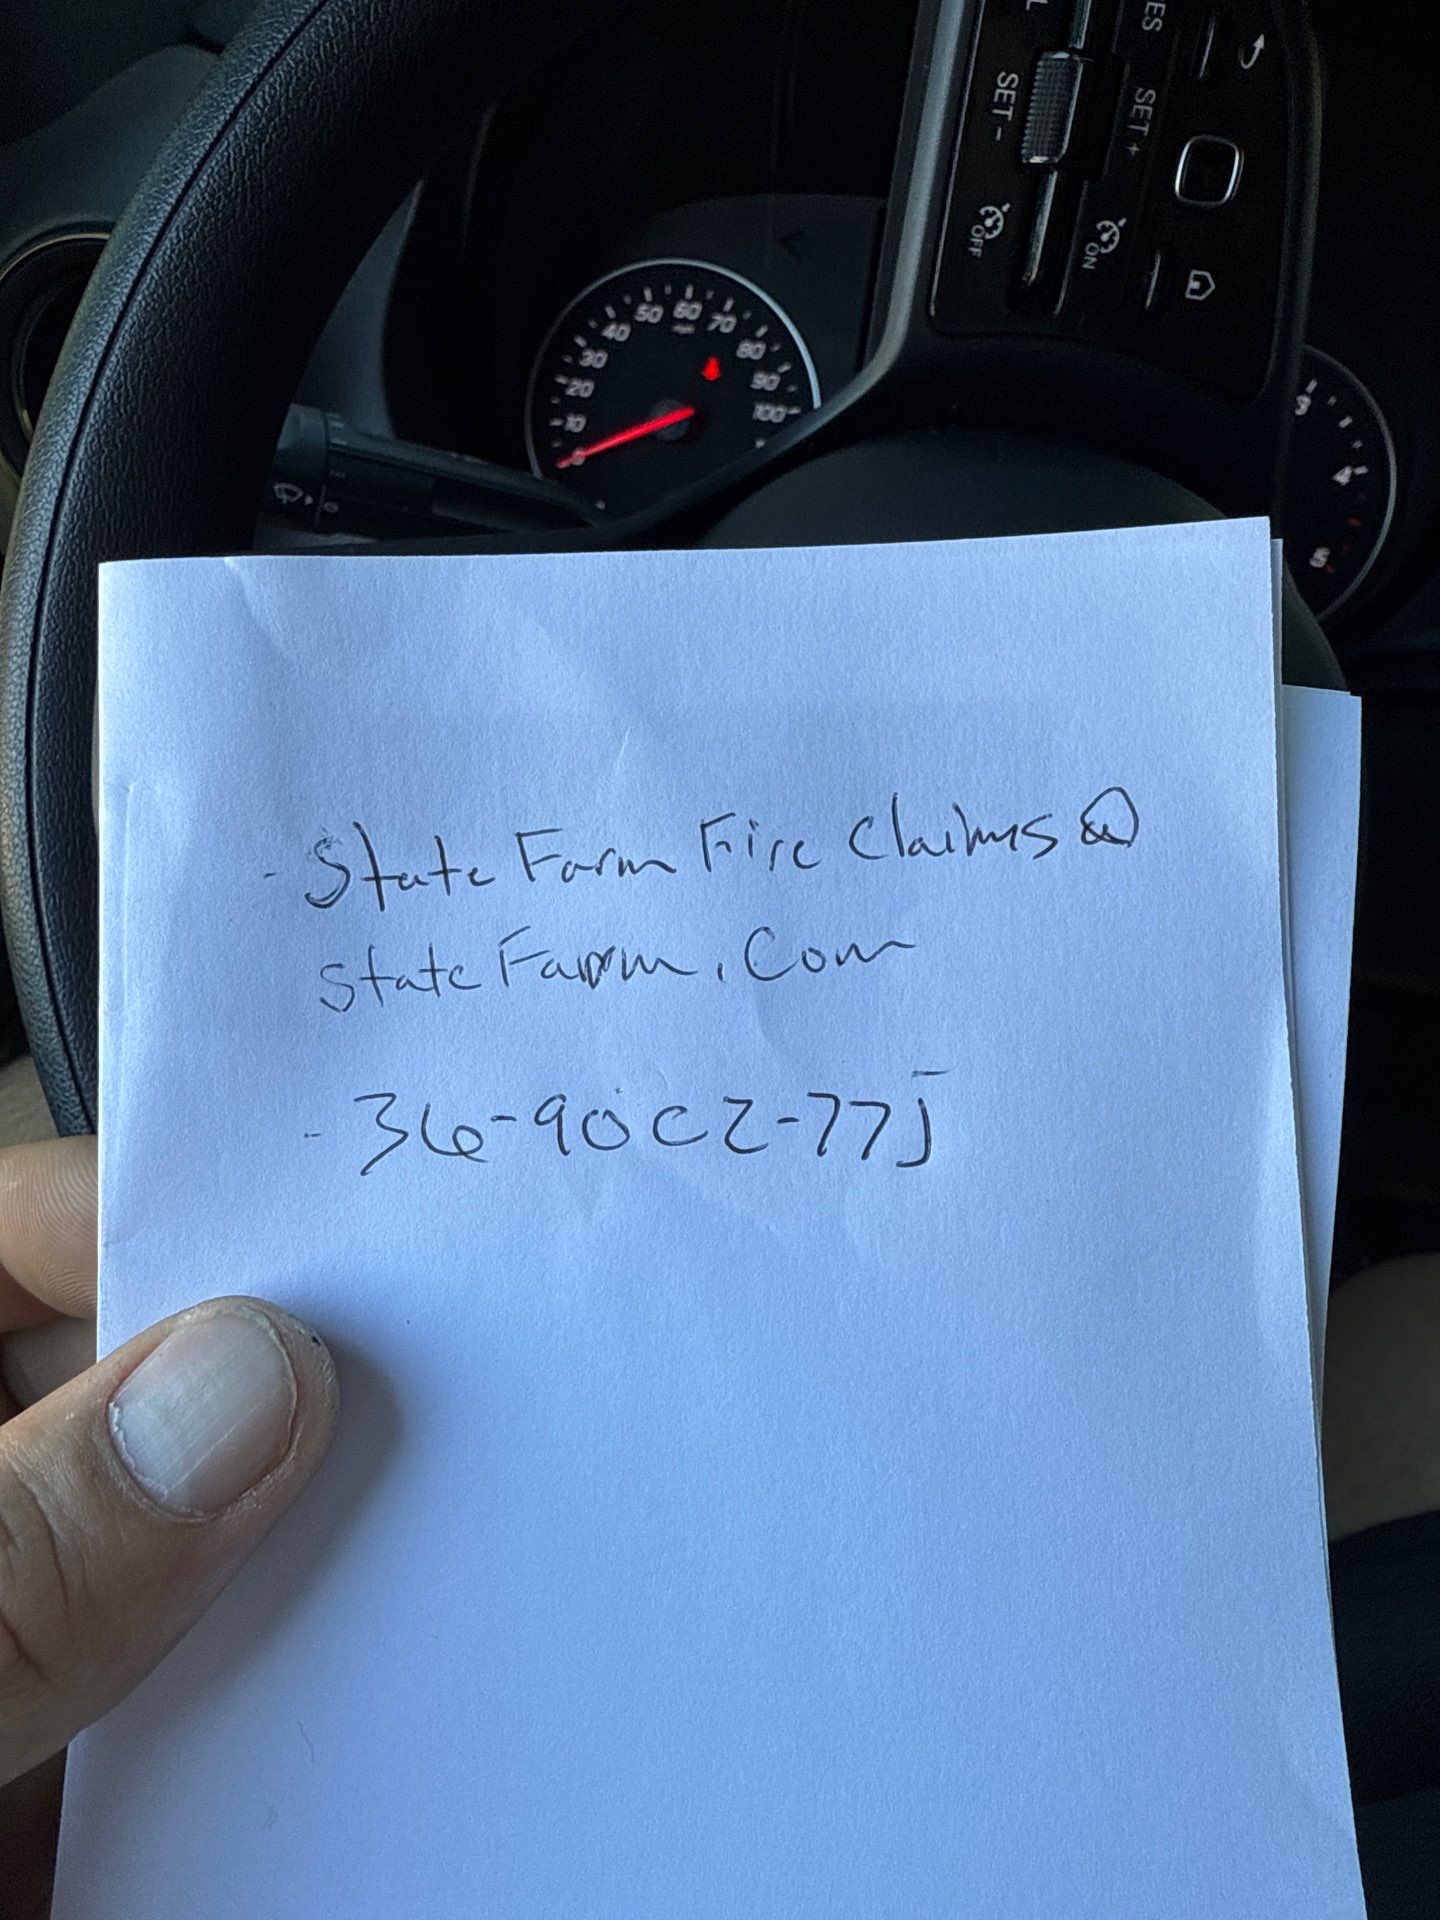 SET -
SET +
OFF
ON
0
10
20
30
40
50
60
70
80
90
100
3
4
5
- State Farm Fire Claims @
StateFarm.Com
- 36-90C2-77J